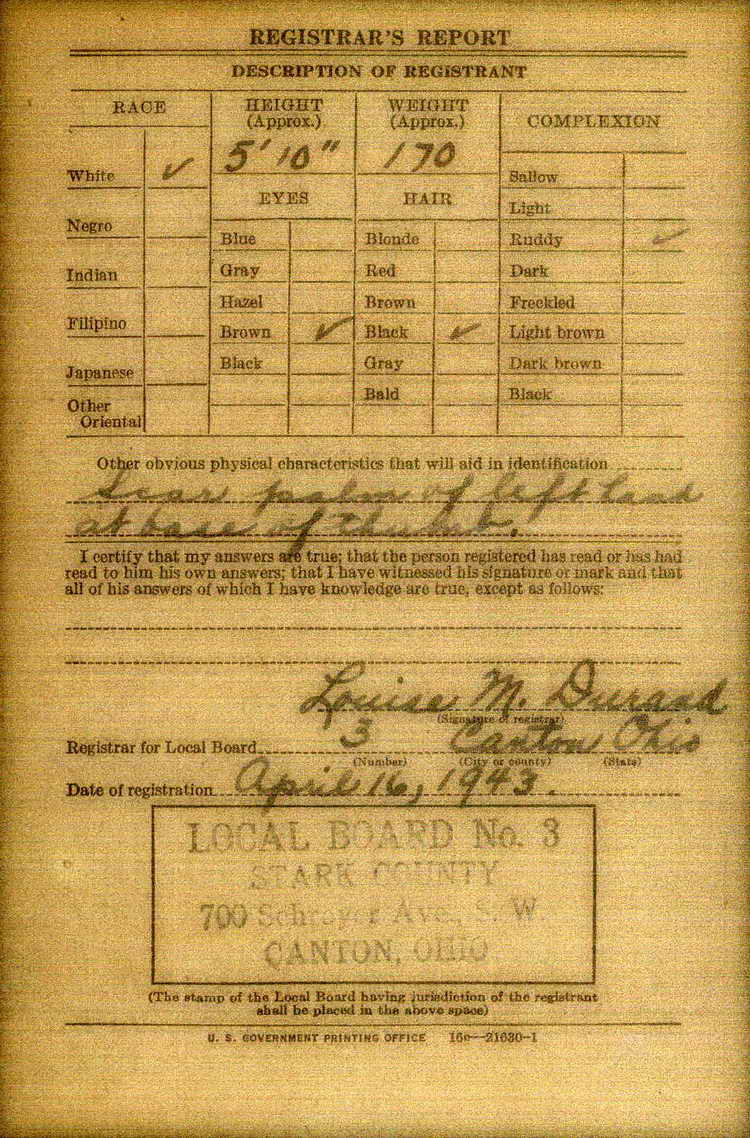 REGISTRAR'S REPORT
DESCRIPTION OF REGISTRANT
RACE
White ✓
Negro
Indian
Filipino
Japanese
Other
Oriental
HEIGHT
(Approx.)
5' 10"
WEIGHT
(Approx.)
170
EYES
Blue
Gray
Hazel
Brown ✓
Black
HAIR
Blonde
Red
Brown
Black ✓
Gray
Bald
COMPLEXION
Sallow
Light
Ruddy ✓
Dark
Freckled
Light brown
Dark brown
Black
Other obvious physical characteristics that will aid in identification
Scar palm of left hand
at base of thumb.
I certify that my answers are true; that the person registered has read or has had
read to him his own answers; that I have witnessed his signature or mark and that
all of his answers of which I have knowledge are true, except as follows:
Louise M. Durand
(Signature of registrar)
Registrar for Local Board 3 Canton Ohio
(Number) (City or county) (State)
Date of registration April 16, 1943.
LOCAL BOARD No. 3
STARK COUNTY
700 Schroyer Ave., S. W.
CANTON, OHIO
(The stamp of the Local Board having jurisdiction of the registrant
shall be placed in the above space)
U. S. GOVERNMENT PRINTING OFFICE 16—21630-1